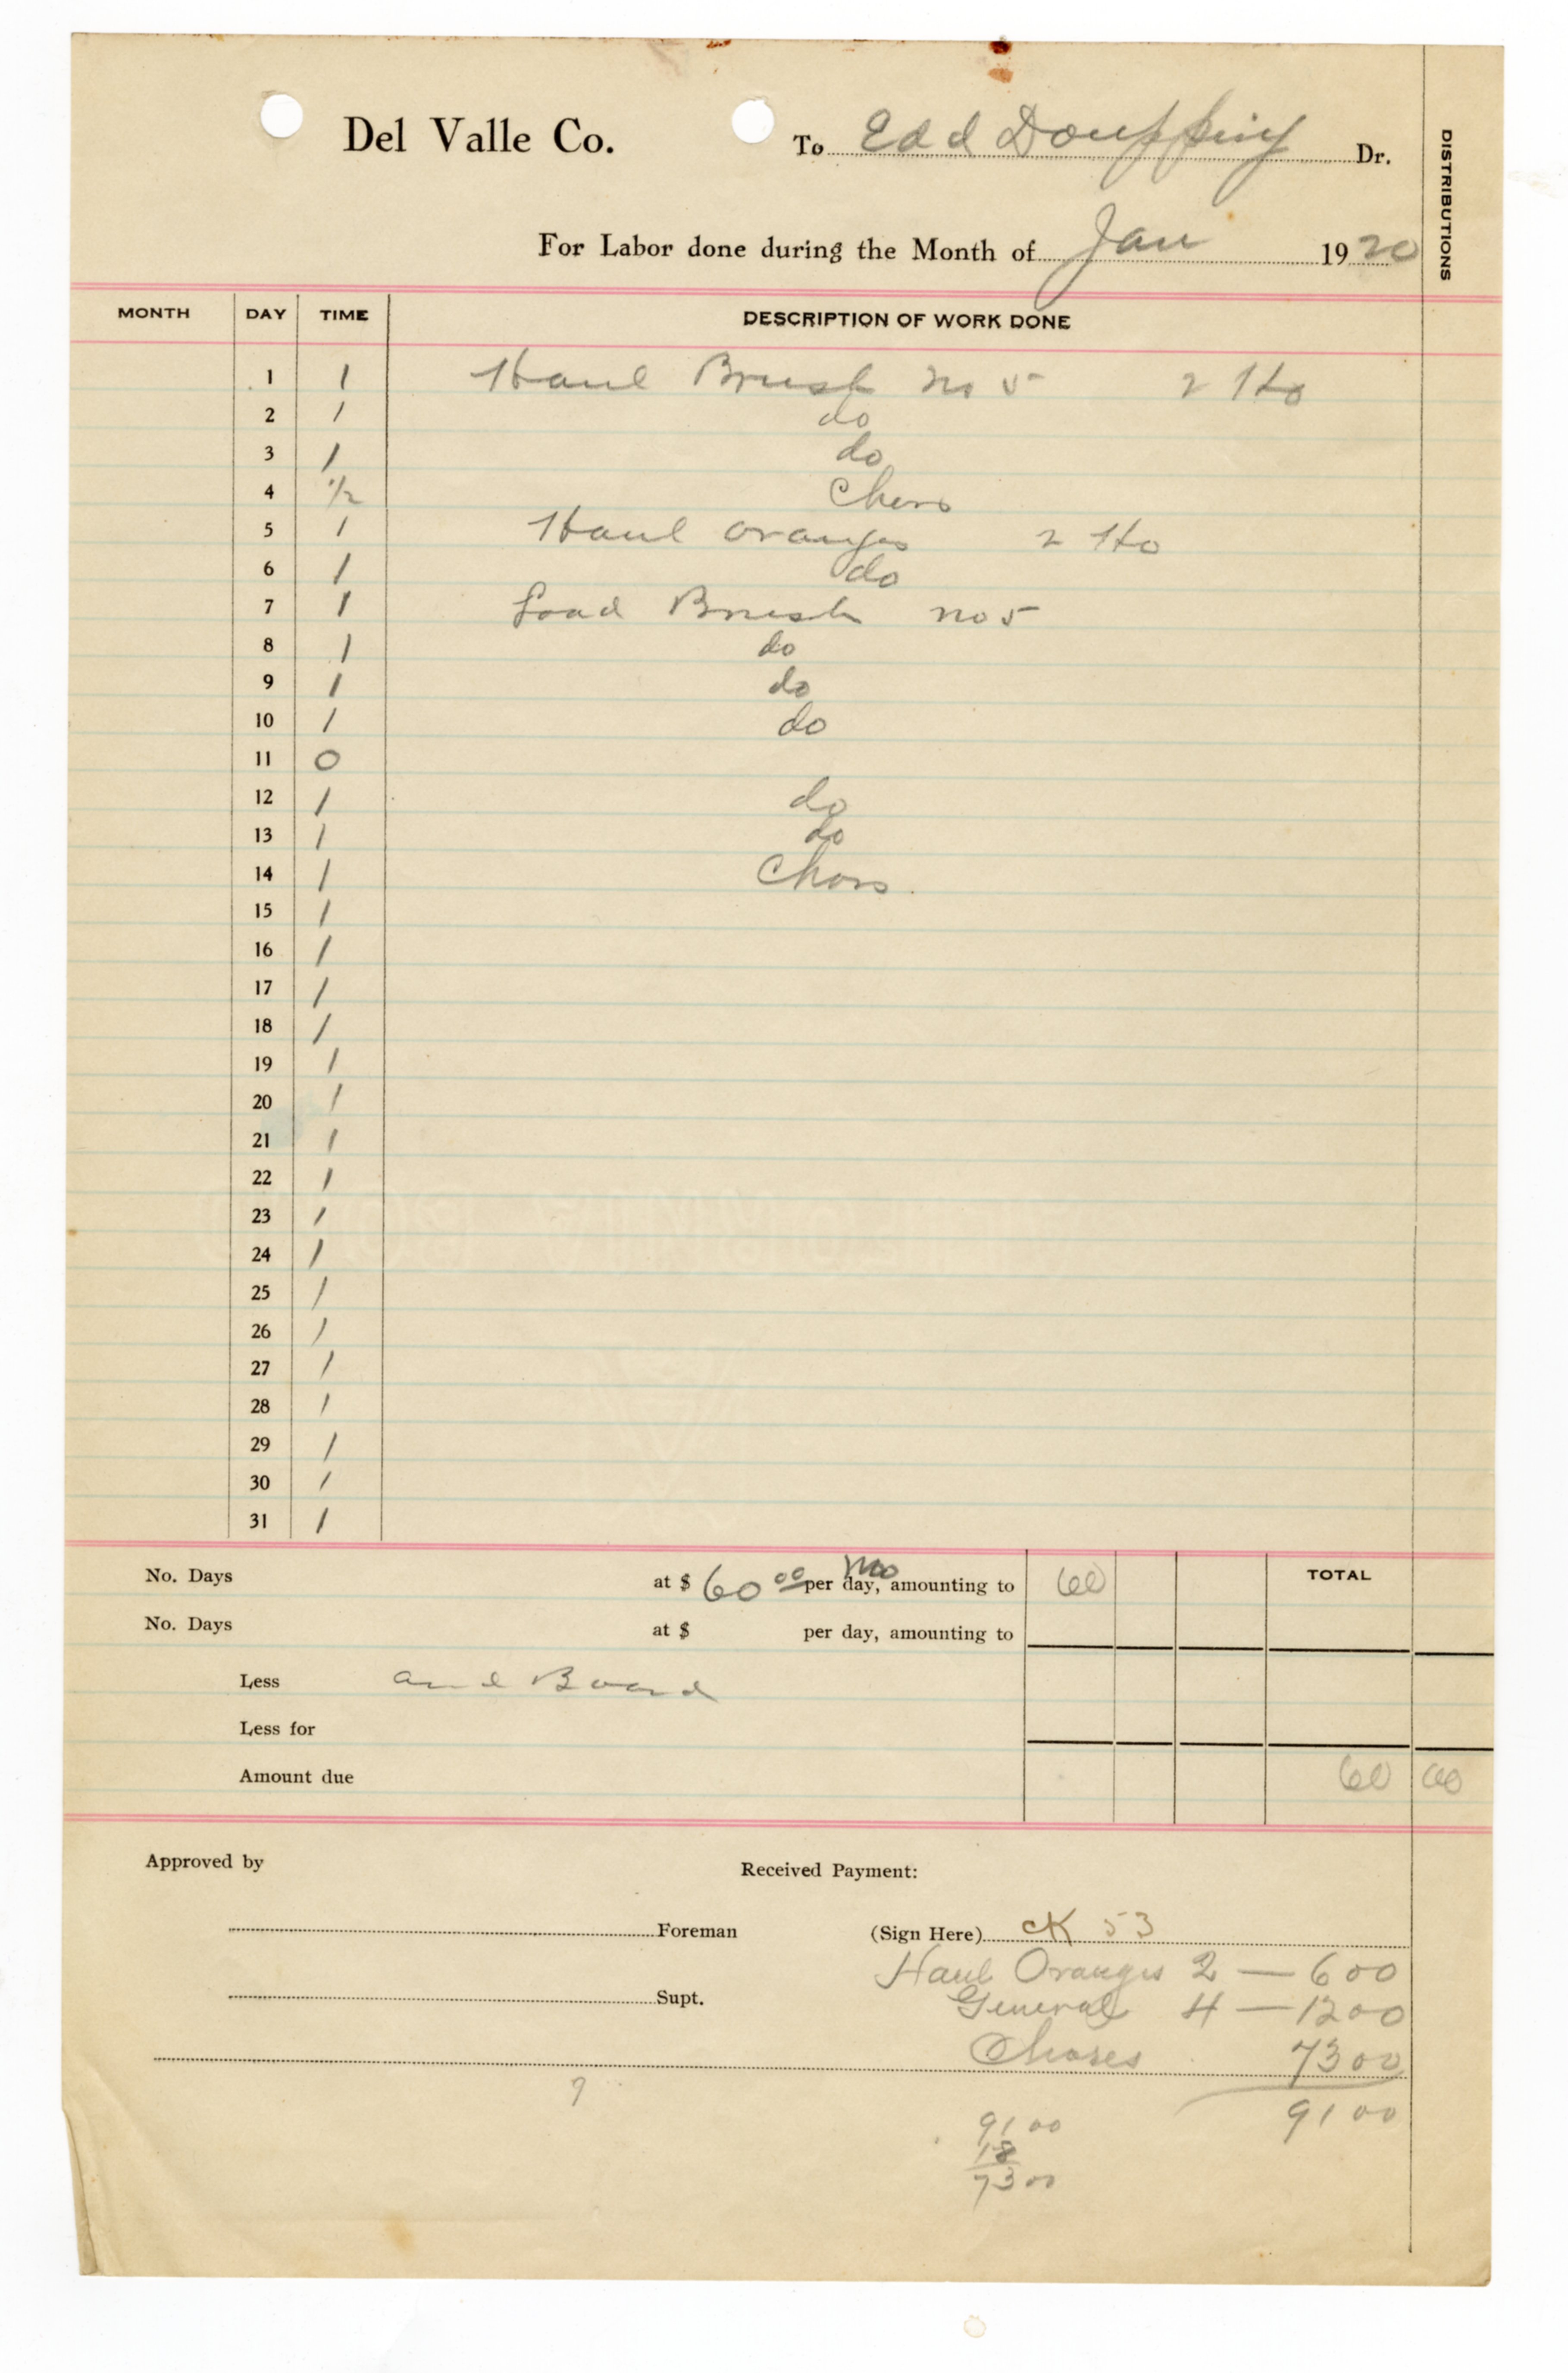 Del Valle Co. To Edd Dr.
For Labor done during the Month of Jan 1920
DISTRIBUTIONS
MONTH DAY TIME DESCRIPTION OF WORK DONE
1 1 Haul Brush no 5 2 Ho
2 1 do
3 1 do
4 1/2 Chors
5 1 Haul oranges 2 Ho
6 1 do
7 1 Load Brush no 5
8 1 do
9 1 do
10 1 do
11 0
12 1 do
13 1 do
14 1 Chors.
15 1
16 1
17 1
18 1
19 1
20 1
21 1
22 1
23 1
24 1
25 1
26 1
27 1
28 1
29 1
30 1
31 1
No. Days at $ 60 00 per day, mo amounting to 60 TOTAL
No. Days at $ per day, amounting to
Less and Board
Less for
Amount due 60 00
Approved by Received Payment:
Foreman (Sign Here) CK 53
Haul Oranges 2 — 6 00
Supt. General 4 — 12 00
Chores 73 00
7
91 00
91 00
18
73 00